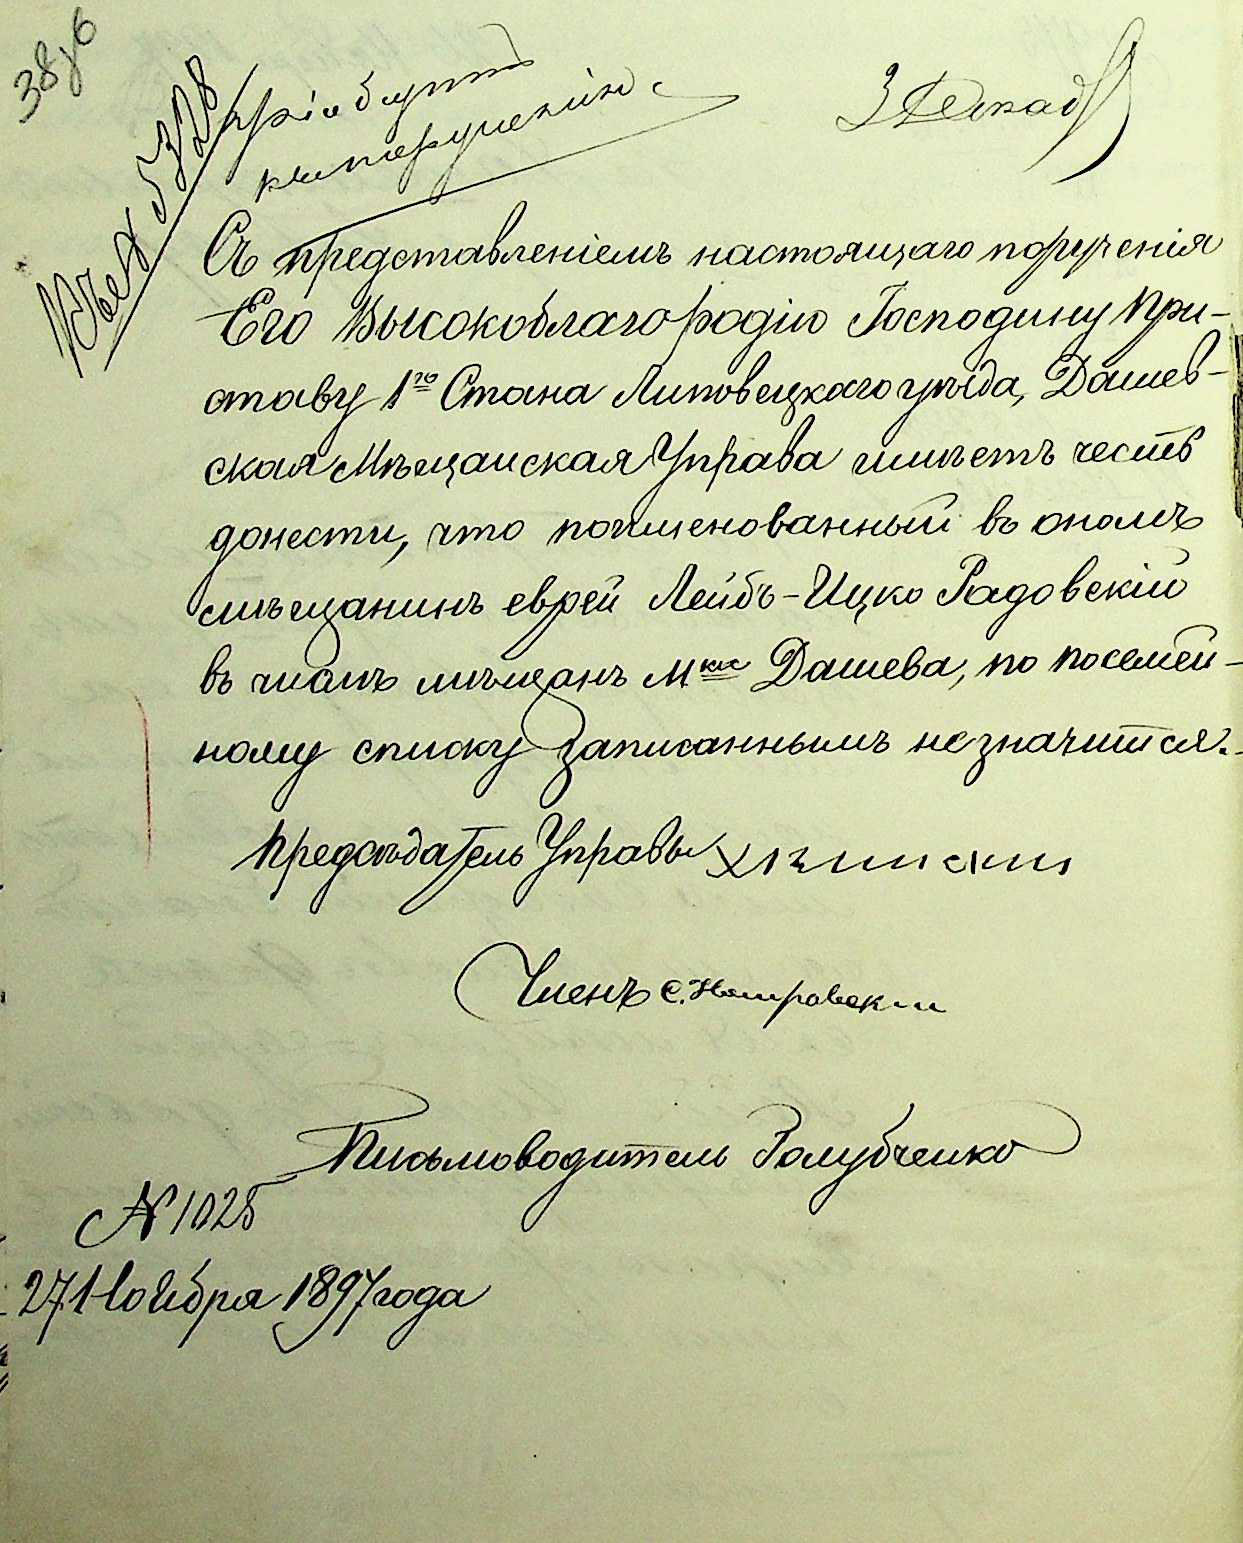 38 об
3 Декаб
Къ вх 5328
Пріобщить
къ порученію
Съ представленіемъ настоящаго порученія
Его Высокоблагородію Господину При-
ставу 1го Стана Липовецкаго уѣзда, Дашев-
ская Мѣщанская Управа имѣетъ честь
донести, что поименованный въ ономъ
мѣщанинъ еврей Лейбъ-Ицко Радовскій
въ числѣ мѣщанъ мки Дашева, по посемей-
ному списку записаннымъ незначится.
Предсѣдатель Управы
Членъ С.
Письмоводитель Голубченко
№ 1025
27 Ноября 1897 года